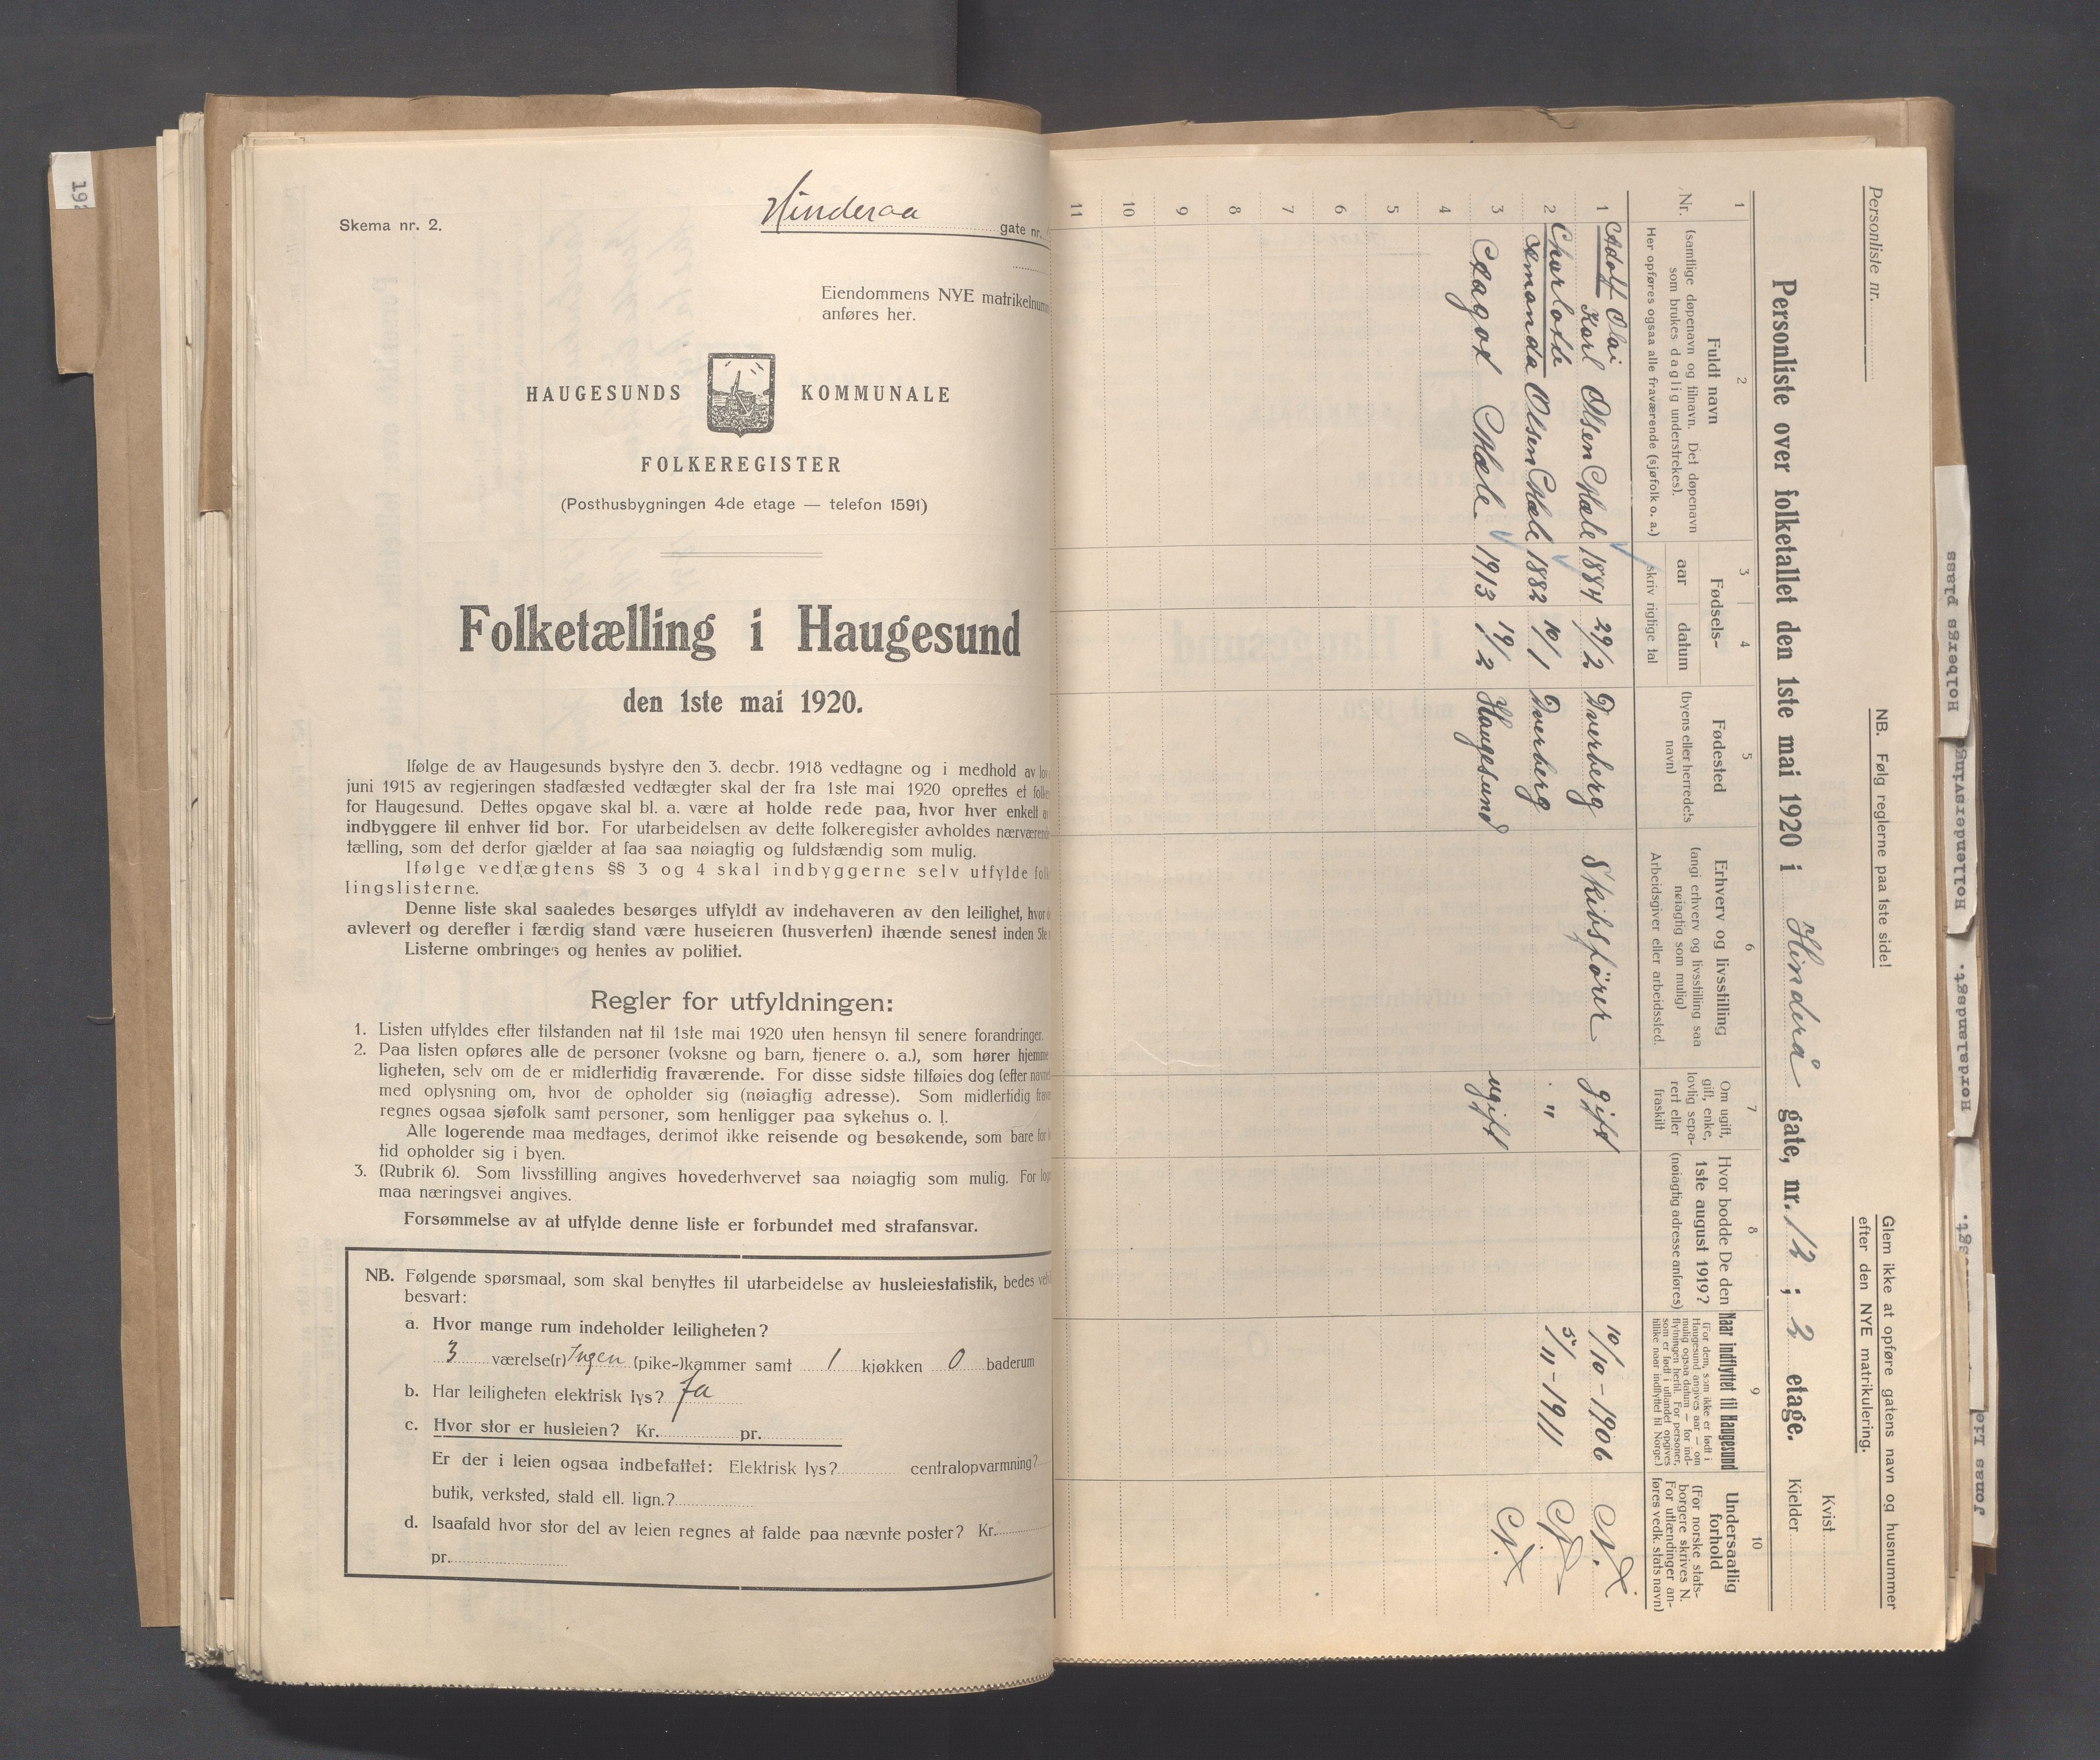 192
Skema nr. 2.
Hinderaa gate nr.
Eiendommens NYE matrikelnum
anføres her.
HAUGESUNDS KOMMUNALE
FOLKEREGISTER
(Posthusbygningen 4de etage — telefon 1591)
Folketælling i Haugesund
den 1ste mai 1920.
Ifølge de av Haugesunds bystyre den 3. decbr. 1918 vedtagne og i medhold av lov
juni 1915 av regjeringen stadfæsted vedtægter skal der fra 1ste mai 1920 oprettes et folke
for Haugesund. Dettes opgave skal bl. a. være at holde rede paa, hvor hver enkelt av
indbyggere til enhver tid bor. For utarbeidelsen av dette folkeregister avholdes nærværende
tælling, som det derfor gjælder at faa saa nøiagtig og fuldstændig som mulig.
Ifølge vedtægtens §§ 3 og 4 skal indbyggerne selv utfylde folk
lingslisterne.
Denne liste skal saaledes besørges utfyldt av indehaveren av den leilighet, hvor d
avlevert og derefter i færdig stand være huseieren (husverten) ihænde senest inden 5te
Listerne ombringes og hentes av politiet.
Regler for utfyldningen:
1. Listen utfyldes efter tilstanden nat til 1ste mai 1920 uten hensyn til senere forandringer.
2. Paa listen opføres alle de personer (voksne og barn, tjenere o. a.), som hører hjemme
ligheten, selv om de er midlertidig fraværende. For disse sidste tilføies dog (efter navnet
med oplysning om, hvor de opholder sig (nøiagtig adresse). Som midlertidig frav
regnes ogsaa sjøfolk samt personer, som henligger paa sykehus o. l.
Alle logerende maa medtages, derimot ikke reisende og besøkende, som bare for
tid opholder sig i byen.
3. (Rubrik 6). Som livsstilling angives hovederhvervet saa nøiagtig som mulig. For log
maa næringsvei angives.
Forsømmelse av at utfylde denne liste er forbundet med strafansvar.
NB. Følgende spørsmaal, som skal benyttes til utarbeidelse av husleiestatistik, bedes vel
besvart:
a. Hvor mange rum indeholder leiligheten?
3 værelse(r) Ingen (pike-)kammer samt 1 kjøkken 0 baderum
b. Har leiligheten elektrisk lys? Ja
c. Hvor stor er husleien? Kr. pr.
Er der i leien ogsaa indbefattet: Elektrisk lys? centralopvarmning?
butik, verksted, stald ell. lign.?
d. Isaafald hvor stor del av leien regnes at falde paa nævnte poster? Kr.
pr.
Personliste nr.
NB. Følg reglerne paa 1ste side!
Glem ikke at opføre gatens navn og husnummer
efter den NYE matrikulering.
Kvist
Personliste over folketallet den 1ste mai 1920 i Hinderå gate, nr. 12 ; 2 etage.
Kjelder
1 2 3 4 5 6 7 8 9 10
Nr.
Fuldt navn
(samtlige døpenavn og tilnavn. Det døpenavn
som brukes daglig understrekes).
Her opføres ogsaa alle fraværende (sjøfolk o. a.)
Fødsels-
aar datum
skriv rigtige tal
Fødested
(byens eller herredets
navn)
Erhverv og livsstilling
(angi erhverv og livsstilling saa
nøiagtig som mulig)
Arbeidsgiver eller arbeidssted.
Om ugift,
gift, enke,
lovlig sepa-
rert eller
fraskilt
Hvor bodde De den
1ste august 1919?
(nøiagtig adresse anføres)
Naar indflyttet til Haugesund
(For dem, som ikke er født i
Haugesund angives aar — om
mulig ogsaa datum — for ind-
flytningen hertil. For personer,
som er født i utlandet opgives
tillike naar indflyttet til Norge.)
Undersaatlig
forhold
(For norske stats-
borgere skrives N.
For utlændinger an-
føres vedk. stats navn)
1 Adolf Olai Karl Olsen Mæle 1884 29/2 Dverberg Skibsfører gift 10/10-1906 N.
2 Charlotte Amanda Olsen Mæle 1882 10/1 Dverberg " 5/11-1911 N.
3 Aagot Mæle. 1913 19/2 Haugesund ugift N.
4
5
6
7
8
9
10
11
Holbergs plass
Hollendersvingen
Hordalandsgt.
sgt.
Jonas Lie